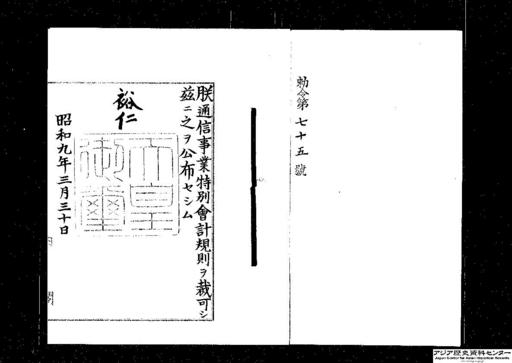 勅令第七十五號
朕通信事業特別會計規則ヲ裁可シ
茲ニ之ヲ公布セシム
裕仁
天皇御璽
昭和九年三月三十日
内閣
アジア歴史資料センター
Japan Center for Asian Historical Records